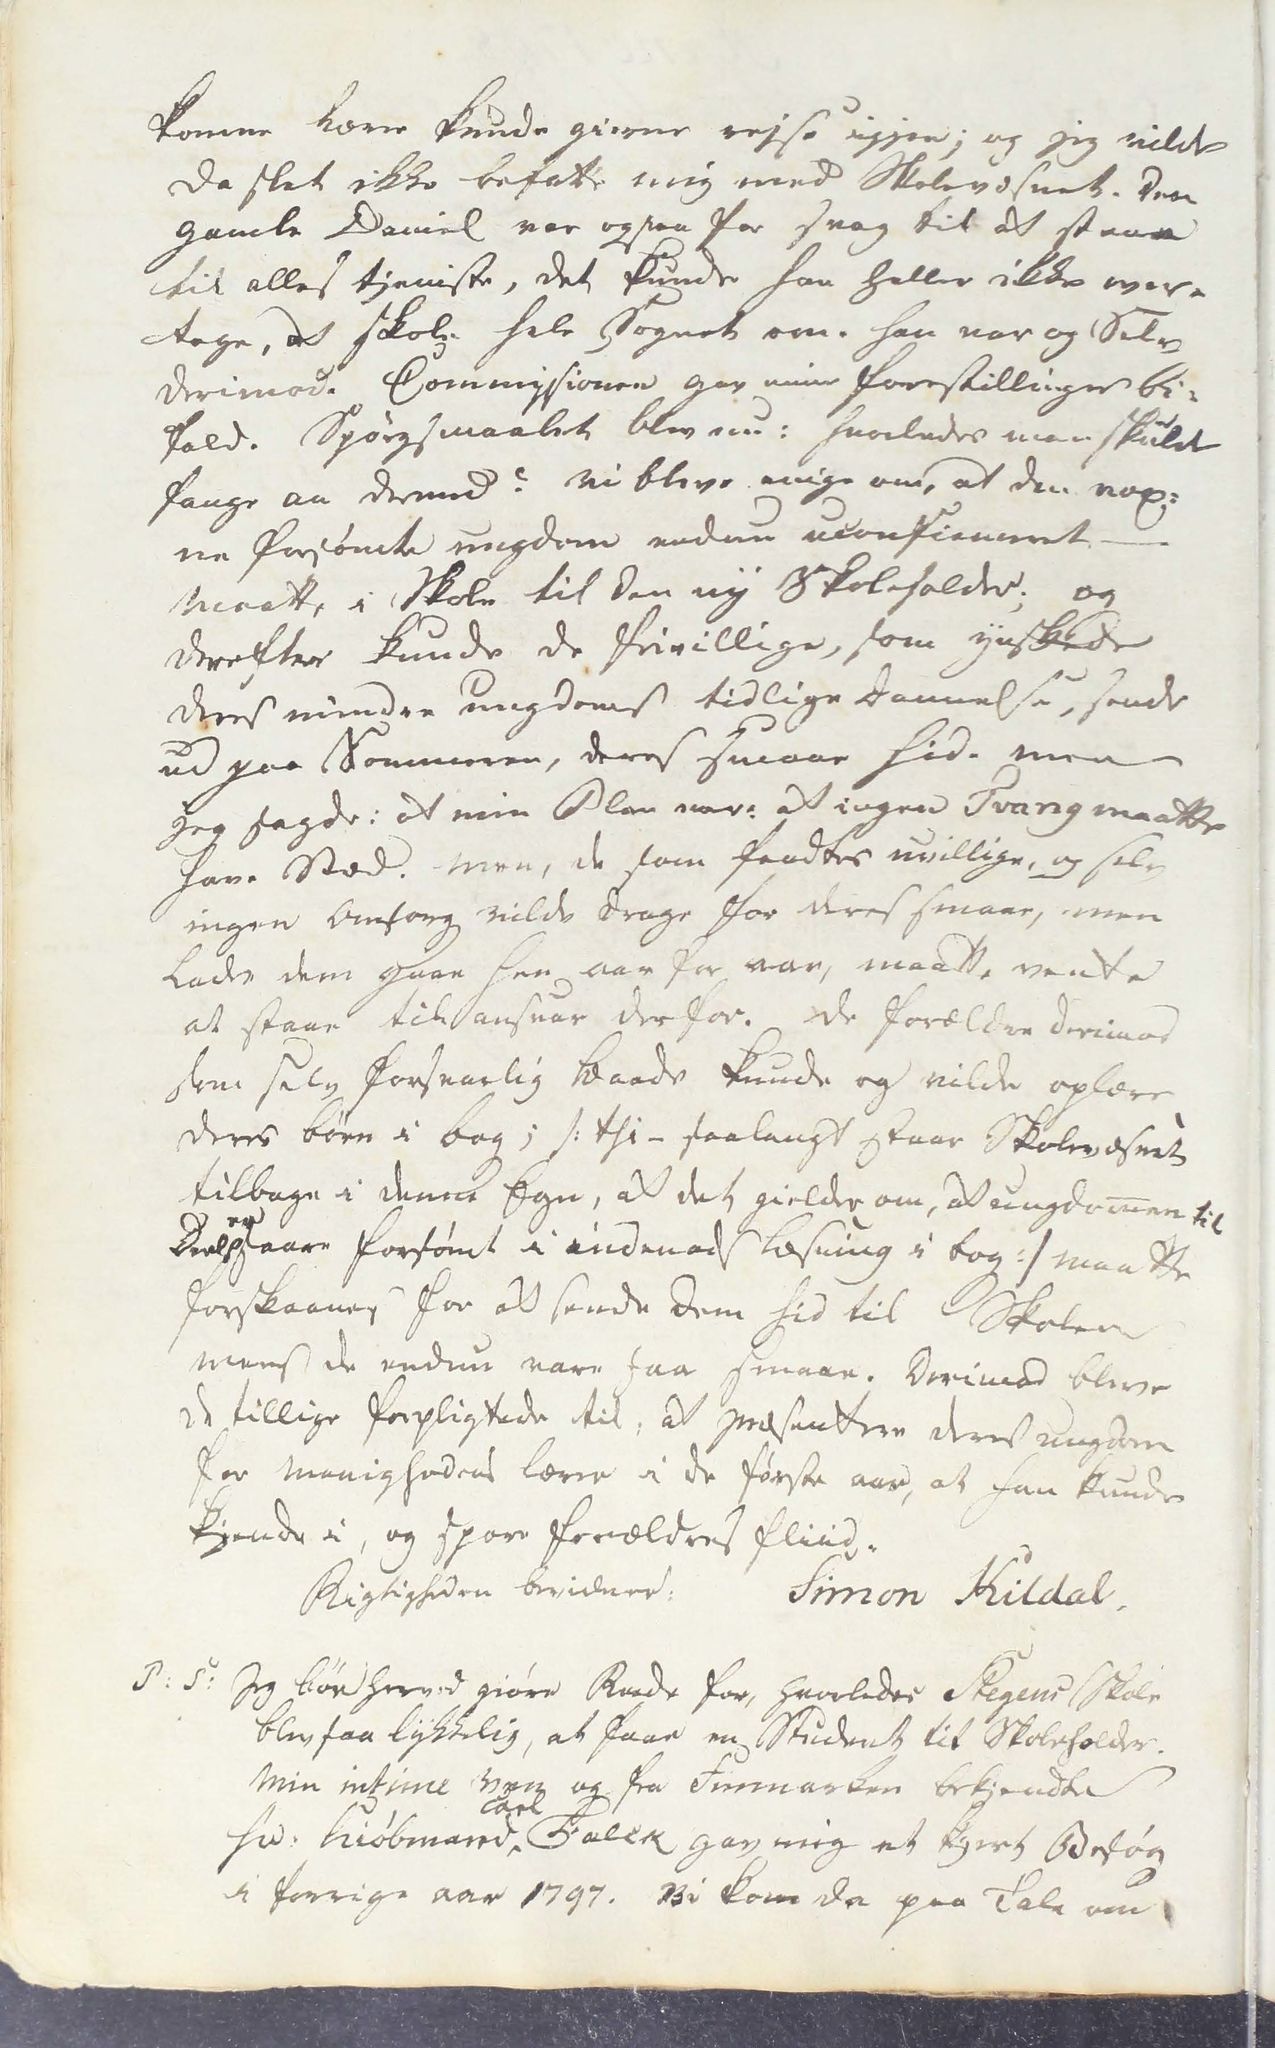 komne lærer kunde gierne rejse igjen; og jeg vilde
da slet ikke befatte mig med Skolevæsnet. Den
gamle Daniel var ogsaa for svag til at staae
til alles tjeniste, det kunde han heller ikke over-
tage, at skole hele Sognet om. han var og Selv
derimod. Commissionen gav mine forestillinger bi-
fald. Spørgsmaalet blev nu: hvorledes man skulde
fange an dermed? vi bleve enige om, at den vox-
ne forsømte ungdom endnu uconfirmeret —
maatte i Skole til den ny Skoleholder; og
derefter kunde de frivillige, som ynskede
deres mindre ungdoms tidlige dannelse, sende
ud paa Sommeren, deres smaae hid. men
jeg sagde: at min Plan var: at ingen Tvang maatte
have Stæd. men, de som fandtes uvillige, og selv
ingen omsorg vilde drage for deres smaae, men
lade dem gaae hen aar for aar, maatte vente
at staae til ansvar derfor. De forældre derimod
som selv forsvarlig baade kunde og vilde oplære
deres børn i bog; /: thi - saalangt staar Skolevæsnet
tilbage i denne Egn, at det gielder om, at ungdommen til
Deels er aare forsømt i indenads læsning i bog :/ maatte
forskaanes for at sende dem hid til Skolen
mens de endnu vare saa smaae. Derimod bleve
de tillige forpligtede til, at præsentere deres ungdom
for menighedens lærer i de første aar, at han kunde
kjende i, og spore forældres fliid.
Rigtigheden bevidner: Simon Kildal.
P: S: Jeg bør herved giøre Rede for, hvorledes Stegens Skole
blev saa lykkelig, at faae en Student til Skoleholder.
Min intime ven og fra Finmarken bekjendte
hr: kiøbmand, Carl Falck gav mig et kjert Besøg
i forrige aar 1797. Vi kom da paa Tale om